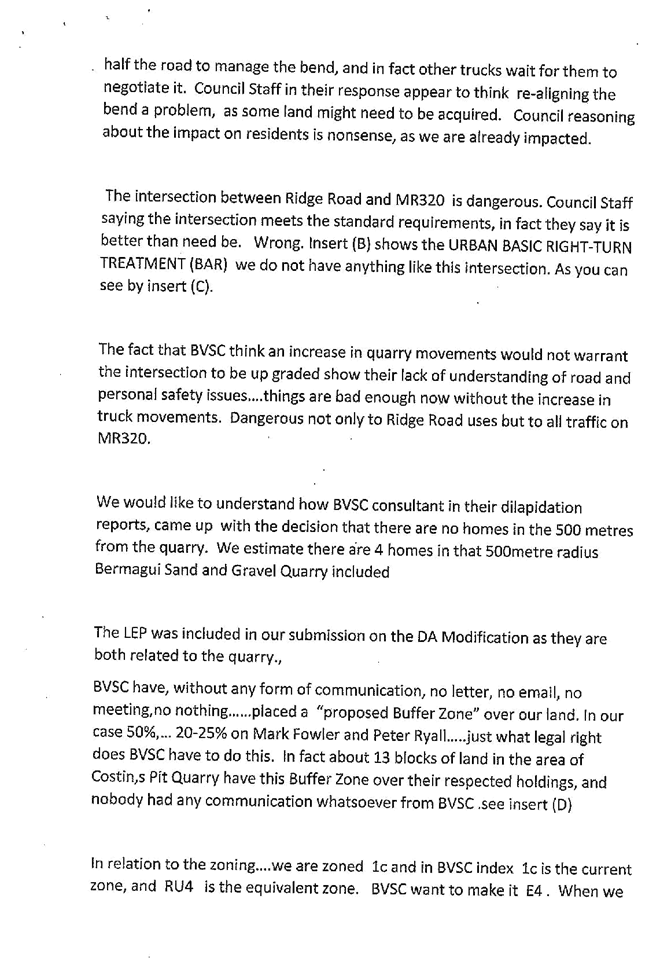 half the road to manage the bend, and in fact other trucks wait for them to
negotiate it. Council Staff in their response appear to think re-aligning the
bend a problem, as some land might need to be acquired. Council reasoning
about the impact on residents is nonsense, as we are already impacted.
The intersection between Ridge Road and MR320 is dangerous. Council Staff
saying the intersection meets the standard requirements, in fact they say it is
better than need be. Wrong. Insert (B) shows the URBAN BASIC RIGHT-TURN
TREATMENT (BAR) we do not have anything like this intersection. As you can
see by insert (C).
The fact that BVSC think an increase in quarry movements would not warrant
the intersection to be up graded show their lack of understanding of road and
personal safety issues....things are bad enough now without the increase in
truck movements. Dangerous not only to Ridge Road uses but to all traffic on
MR320.
We would like to understand how BVSC consultant in their dilapidation
reports, came up with the decision that there are no homes in the 500 metres
from the quarry. We estimate there are 4 homes in that 500metre radius
Bermagui Sand and Gravel Quarry included
The LEP was included in our submission on the DA Modification as they are
both related to the quarry.,
BVSC have, without any form of communication, no letter, no email, no
meeting,no nothing......placed a "proposed Buffer Zone" over our land. In our
case 50%,... 20-25% on Mark Fowler and Peter Ryall.....just what legal right
does BVSC have to do this. In fact about 13 blocks of land in the area of
Costin,s Pit Quarry have this Buffer Zone over their respected holdings, and
nobody had any communication whatsoever from BVSC .see insert (D)
In relation to the zoning....we are zoned 1c and in BVSC index 1c is the current
zone, and RU4 is the equivalent zone. BVSC want to make it E4 . When we